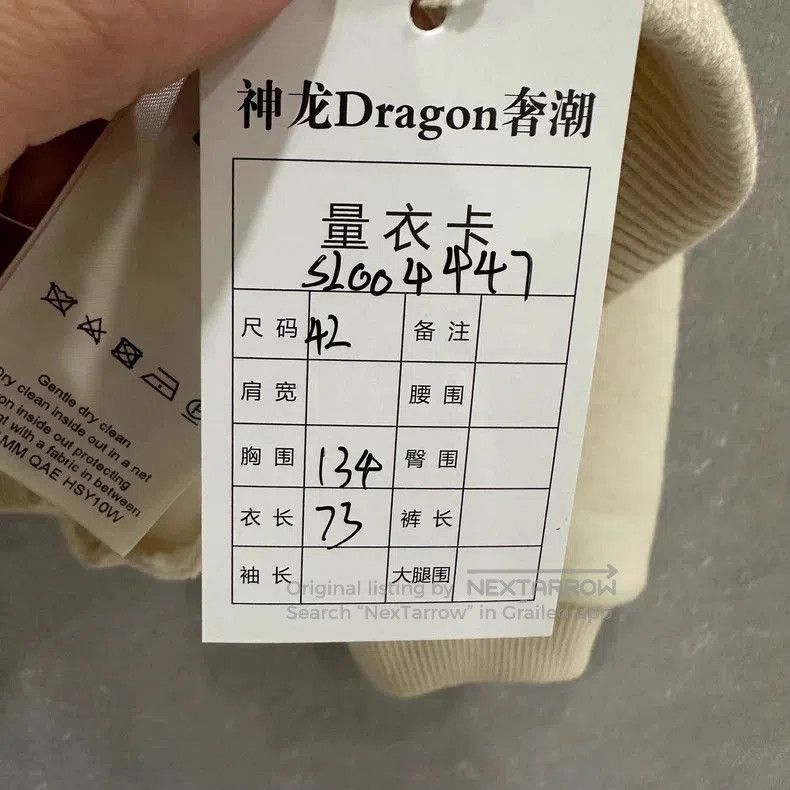 神龙Dragon奢潮
量衣卡
SL004447
尺码 42 备注
肩宽 腰围
胸围 134 臀围
衣长 73 裤长
袖长 大腿围
Gentle dry clean
Dry clean inside out in a net
on inside out protecting
t with a fabric in between
MM QAE HSY10W
Original listing by NEXTARROW
Search "NexTarrow" in Grailed app